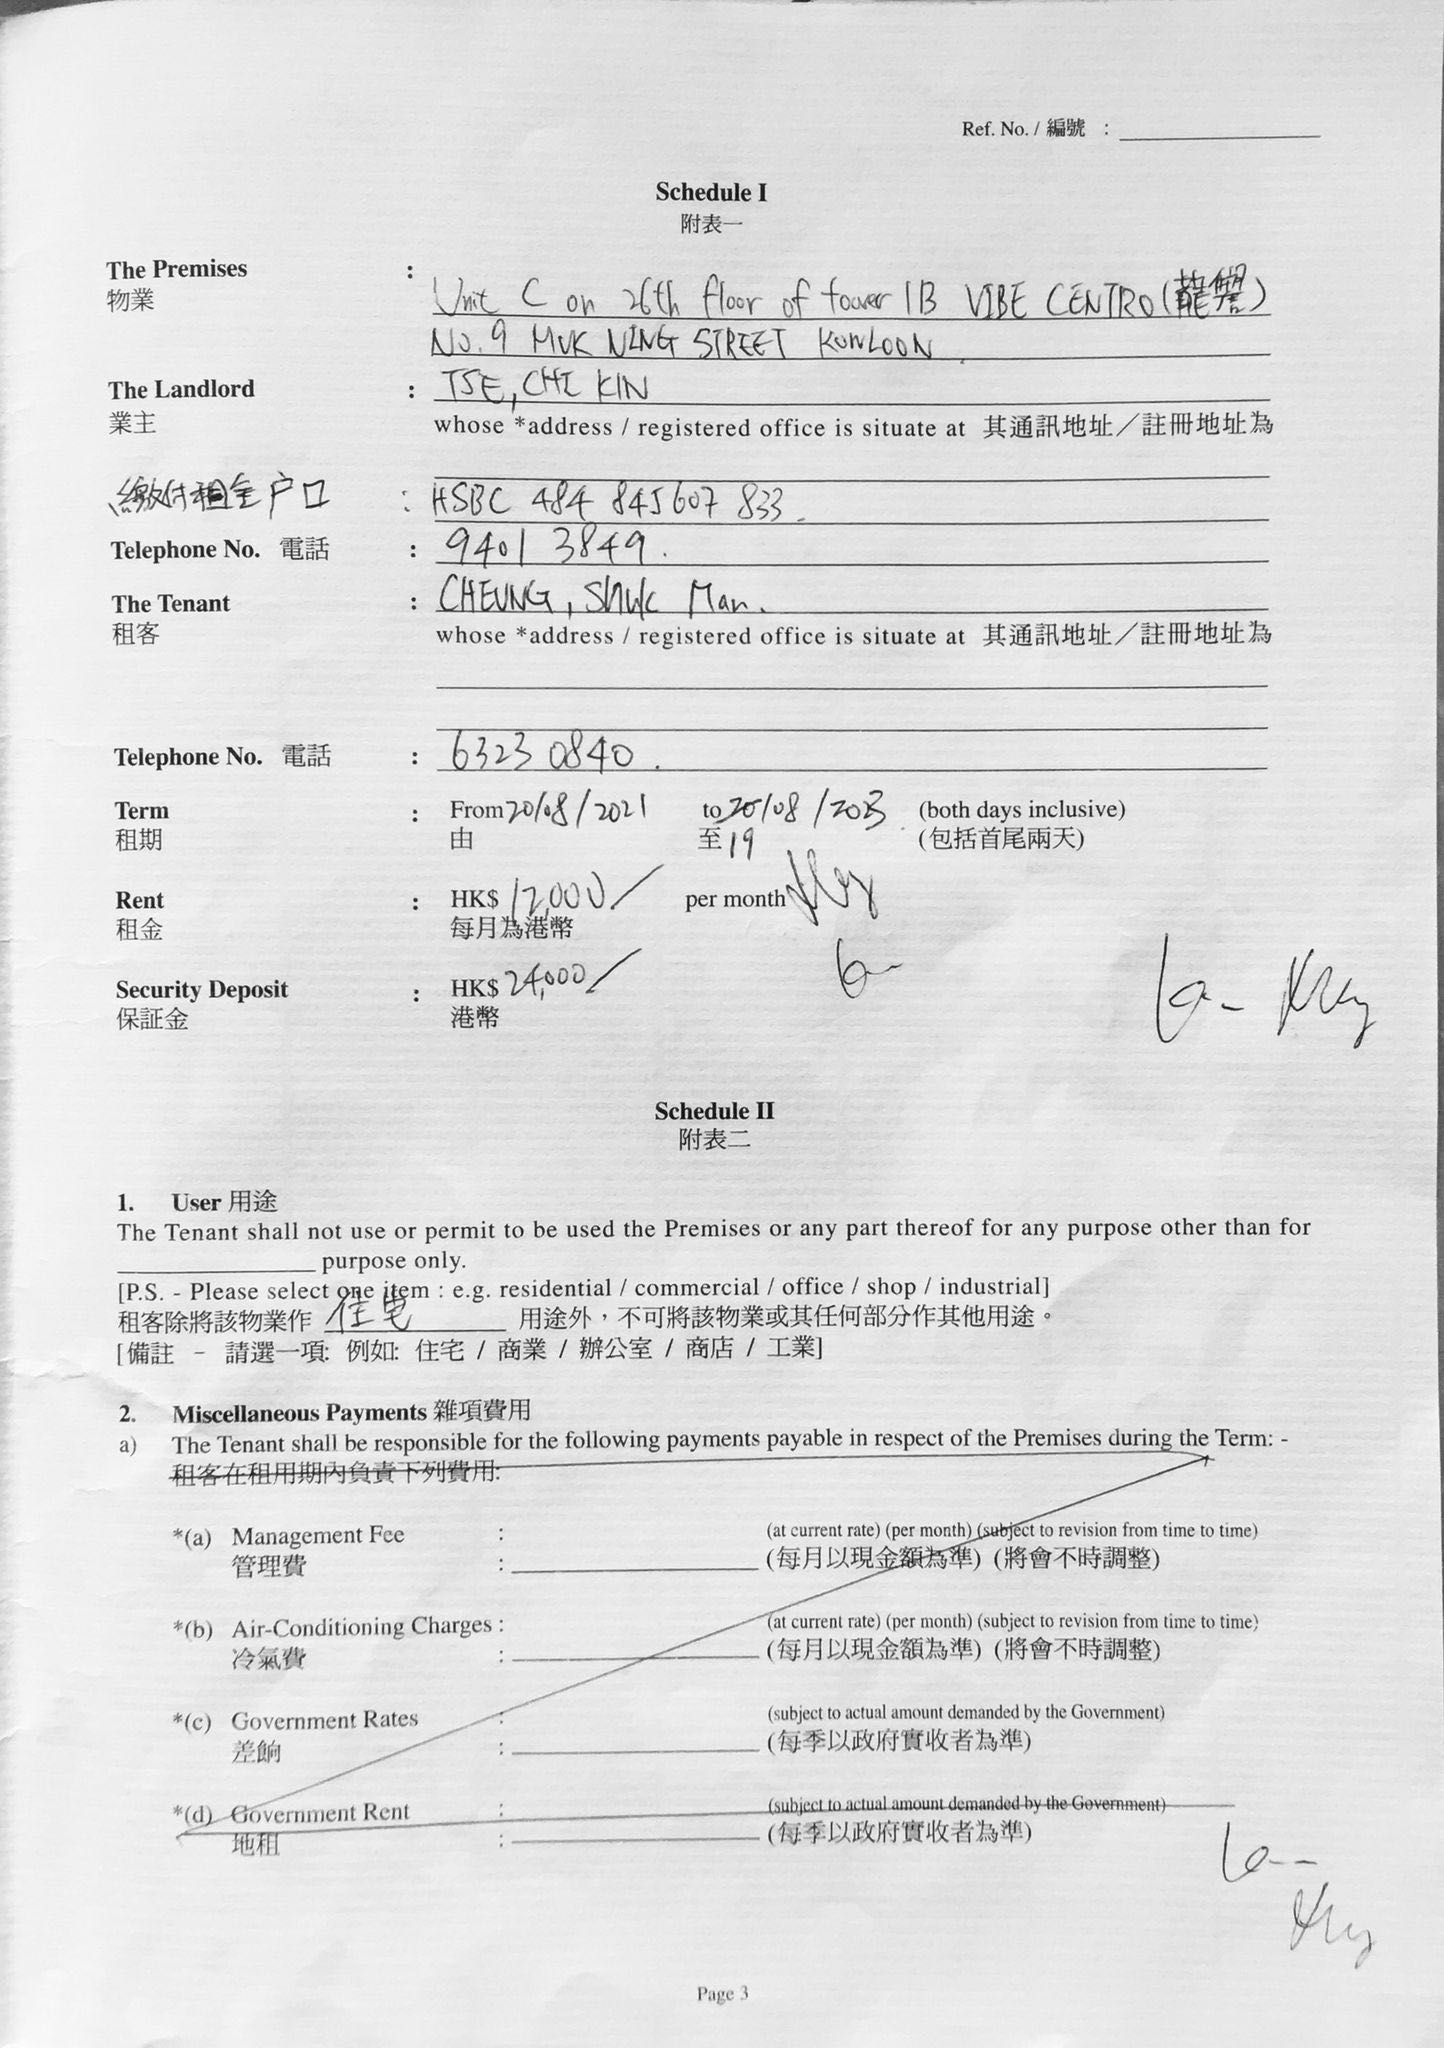 Ref. No. / 編號 :
Schedule I
附表一
The Premises : Unit C on 26th floor of tower 1B VIBE CENTRO (龍譽)
物業 No. 9 MUK NING STREET KOWLOON.
The Landlord : TSE, CHI KIN
業主 whose *address / registered office is situate at 其通訊地址／註冊地址為
繳付租金户口 : HSBC 484 845607 833.
Telephone No. 電話 : 9401 3849.
The Tenant : CHEUNG, Shuk Man.
租客 whose *address / registered office is situate at 其通訊地址／註冊地址為
Telephone No. 電話 : 6323 0840.
Term : From 20/08/2021 to 20/08/2023 (both days inclusive)
租期 由 至 19 (包括首尾兩天)
Rent : HK$ 12,000/ per month
租金 每月為港幣
Security Deposit : HK$ 24,000/
保証金 港幣
Schedule II
附表二
1. User 用途
The Tenant shall not use or permit to be used the Premises or any part thereof for any purpose other than for
purpose only.
[P.S. - Please select one item : e.g. residential / commercial / office / shop / industrial]
租客除將該物業作 住宅 用途外，不可將該物業或其任何部分作其他用途。
[備註 - 請選一項: 例如: 住宅 / 商業 / 辦公室 / 商店 / 工業]
2. Miscellaneous Payments 雜項費用
a) The Tenant shall be responsible for the following payments payable in respect of the Premises during the Term: -
租客在租用期內負責下列費用:
*(a) Management Fee : (at current rate) (per month) (subject to revision from time to time)
管理費 : (每月以現金額為準) (將會不時調整)
*(b) Air-Conditioning Charges : (at current rate) (per month) (subject to revision from time to time)
冷氣費 : (每月以現金額為準) (將會不時調整)
*(c) Government Rates : (subject to actual amount demanded by the Government)
差餉 : (每季以政府實收者為準)
*(d) Government Rent : (subject to actual amount demanded by the Government)
地租 : (每季以政府實收者為準)
Page 3